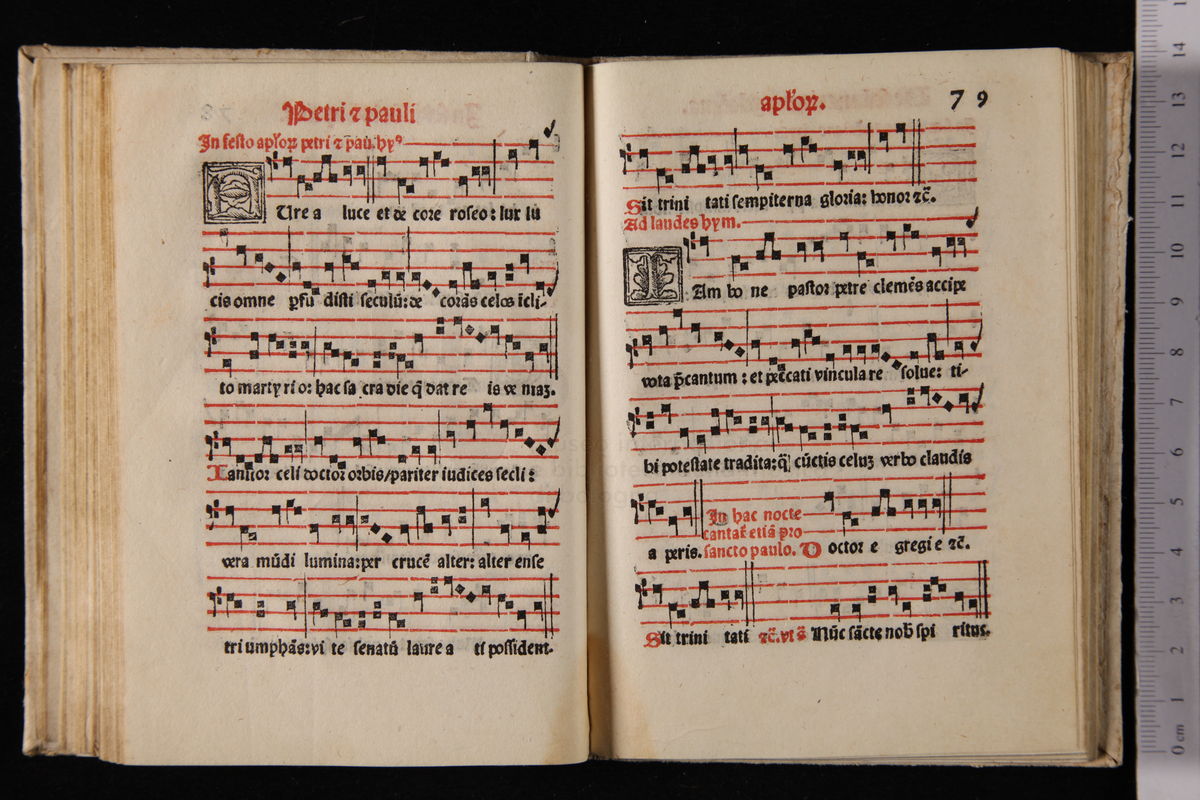 Petri ⁊ pauli
In festo apl'oꝝ petri ⁊ pau. hyꝰ
AUre a luce et de core roseo: lux lu
cis omne ꝑfu disti seculū: de corās celos īcli-
to marty ri o: hac sa cra die q̄ dat re is ve niaʒ.
Ianitor celi doctor orbis/pariter iudices secli:
vera mūdi lumina: per crucē alter: alter ense
tri umphās: vi te senatū laure a ti possident.
apl'oꝝ.
79
Sit trini tati sempiterna gloria: honor ⁊c̄.
Ad laudes hym.
IAm bo ne pastor petre clemēs accipe
vota p̄cantum: et peccati vincula re solue: ti-
bi potestate tradita: q̄ cūctis celuʒ verbo claudis
a peris.
In hac nocte
cantat̄ etiā pro
sancto paulo. Doctor e gregi e ⁊c̄.
Sit trini tati ⁊c̄. vt s̄ Nūc sācte nob̄ spi ritus.
0 cm 1 2 3 4 5 6 7 8 9 10 11 12 13 14